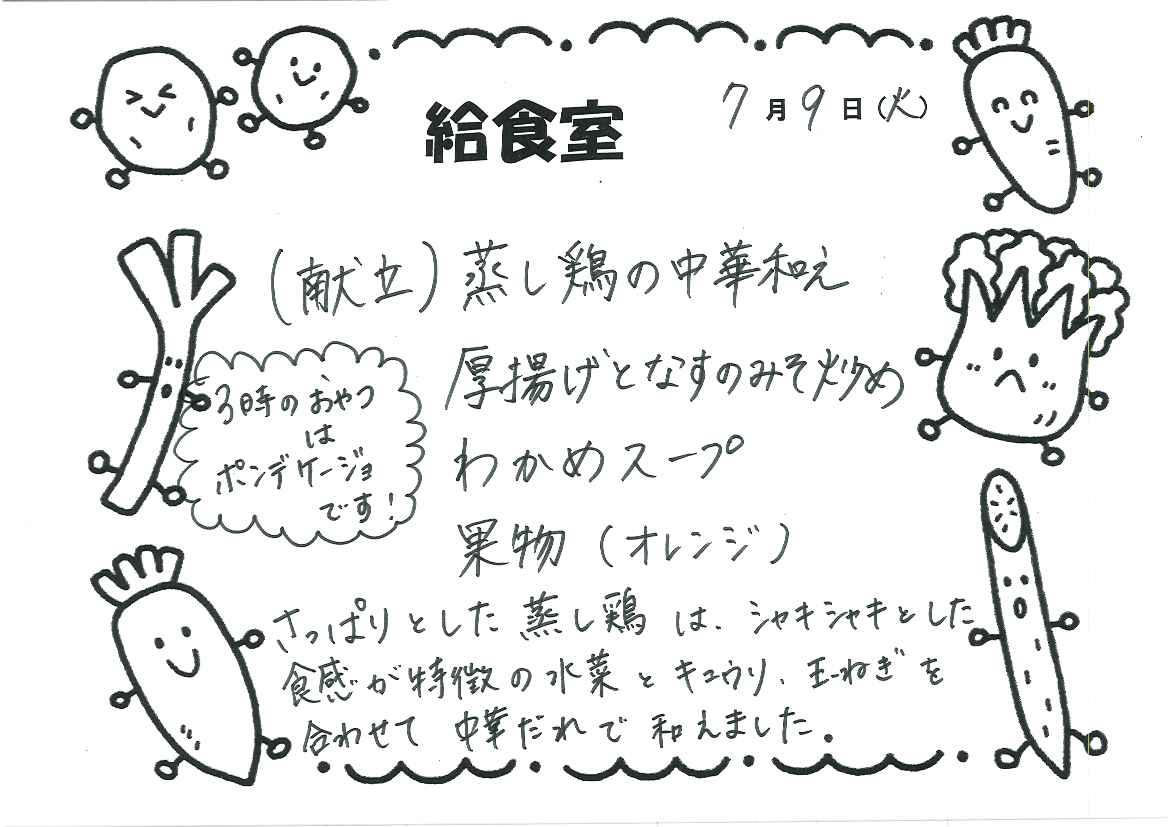 給食室
7月9日(火)
(献立)蒸し鶏の中華和え
厚揚げとなすのみそ炒め
わかめスープ
果物(オレンジ)
3時のおやつ
は
ポンデケージョ
です!
さっぱりとした蒸し鶏は、シャキシャキとした
食感が特徴の水菜とキュウリ、玉ねぎを
合わせて中華だれで和えました。